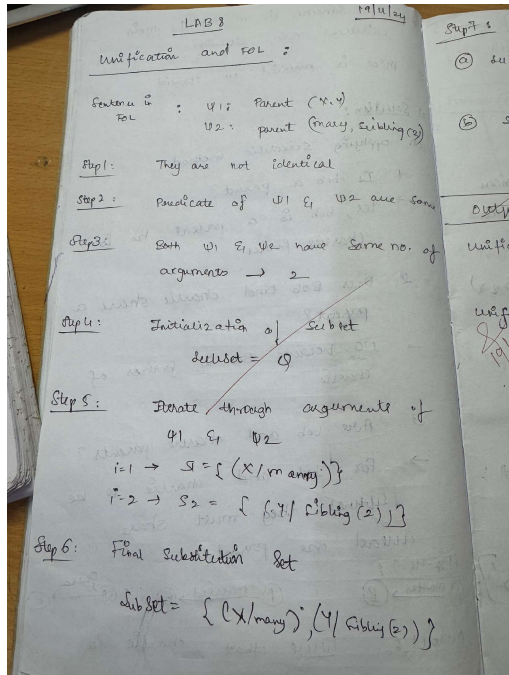 LAB 8
19/11/24
Unification and FOL :
Sentence in FOL : ψ1 : Parent (X, Y)
ψ2 : parent (mary, Sibling(2)
Step 1 : They are not identical
Step 2 : Predicate of ψ1 & ψ2 are same
Step 3 : Both ψ1 & ψ2 have same no. of
arguments → 2
Step 4 : Initialization of Subset
Subset = Ø
Step 5 : Iterate through arguments of
ψ1 & ψ2
i=1 → S1 = { (X/manny) }
i=2 → S2 = { (Y/ Sibling (2) ) }
Step 6 : Final Substitution Set
Sub Set = { (X/many), (Y/ Sibling (2)) }
Step 7 :
(a)
(b)